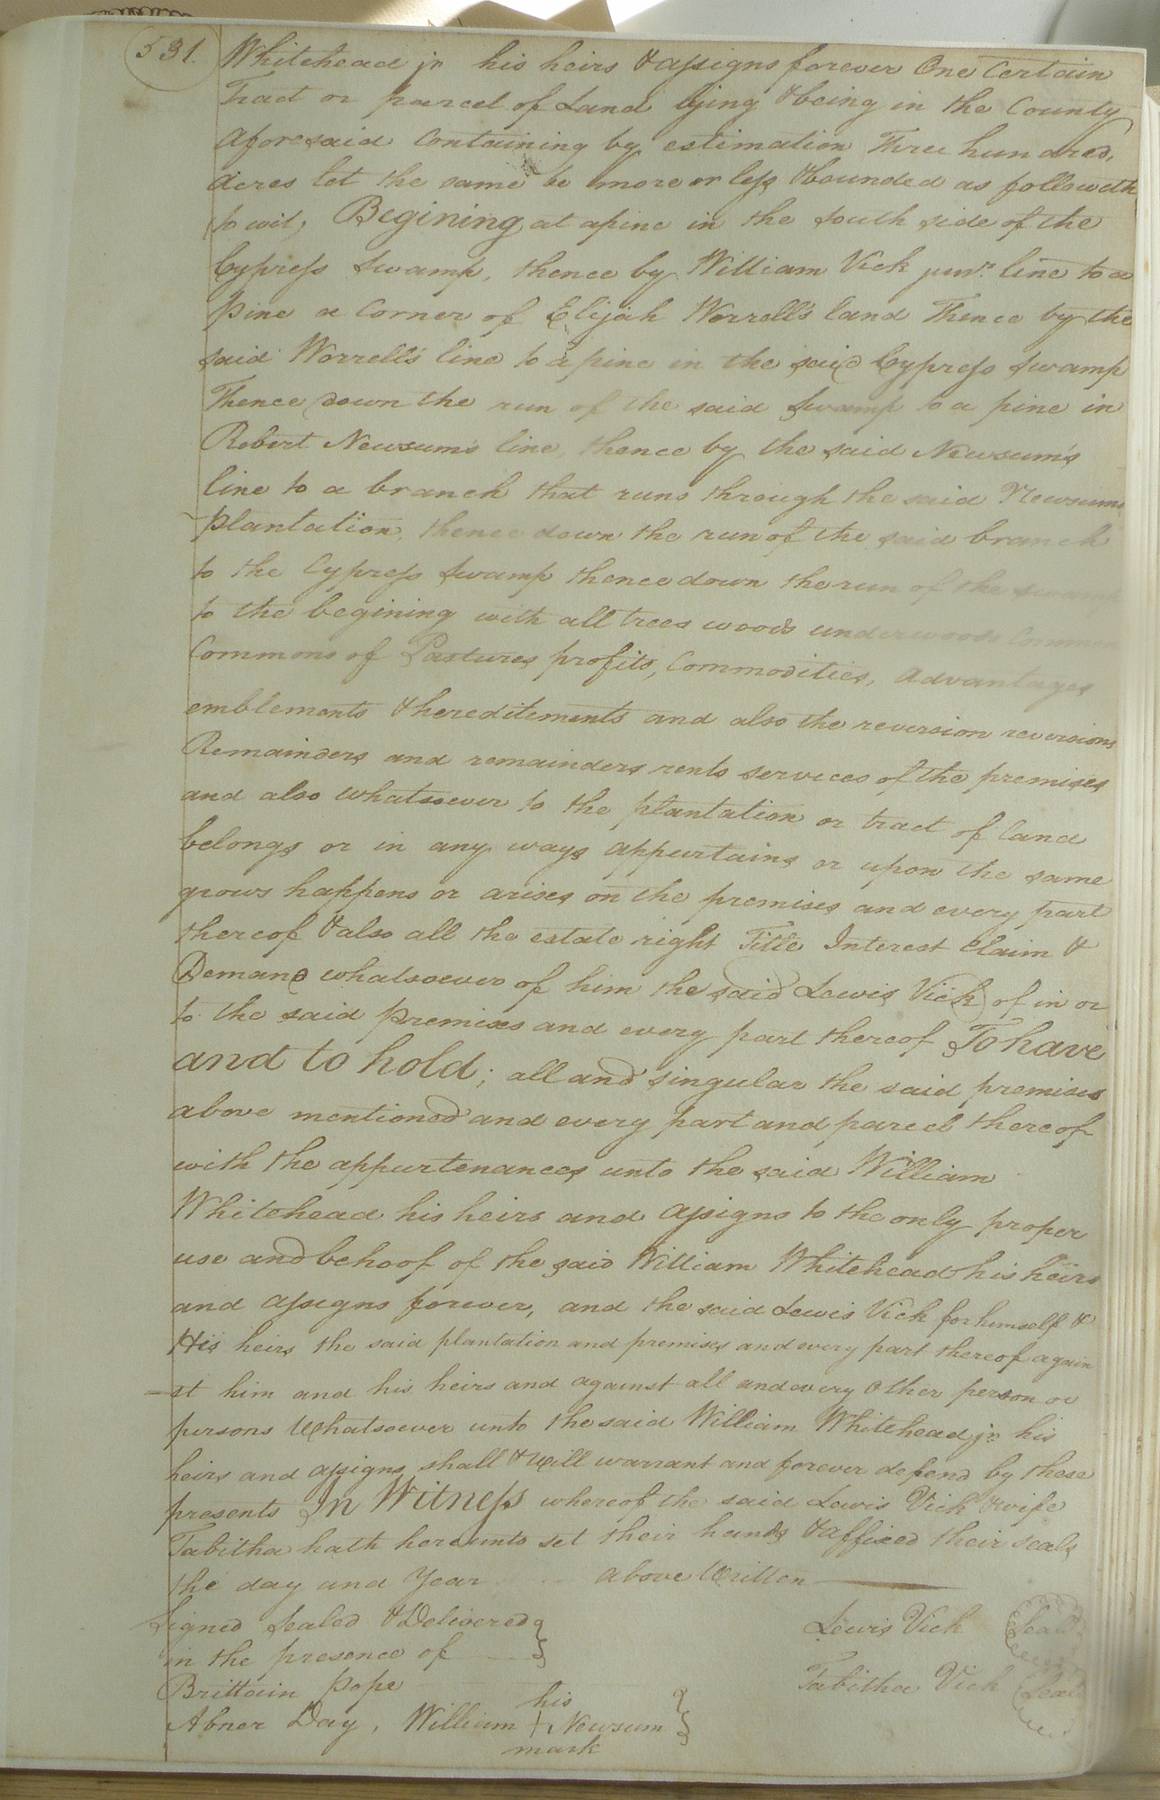 531.
Whitehead jr his heirs & assigns forever One Certain
Tract or parcel of Land lying & being in the County
aforesaid Containing by estimation Three hundred,
Acres let the same be more or less & bounded as followeth
to wit, Begining at a pine in the South side of the
Cypress Swamp, thence by William Vick junr. line to a
pine a Corner of Elijah Worrell's land Thence by the
said Worrell's line to a pine in the said Cypress Swamp
Thence down the run of the said Swamp to a pine in
Robert Newsum's line, thence by the said Newsum's
line to a branch that runs through the said Newsums
plantation, thence down the run of the said branch
to the Cypress Swamp thence down the run of the swamp
to the begining with all trees woods underwoods Common
Commons of Pastures profits, Commodities, advantages
emblements & hereditements and also the reversion reversions
Remainders and remainders rents services of the premises
and also whatsoever to the plantation or tract of land
belongs or in any ways appurtains or upon the same
grows happens or arises on the premises and every part
thereof & also all the estate right Title Interest Claim &
Demand whatsoever of him the said Lewis Vick of in or
to the said premises and every part thereof To have
and to hold; all and singular the said premises
above mentioned and every part and parcel thereof
with the appurtenances unto the said William
Whitehead his heirs and assigns to the only proper
use and behoof of the said William Whitehead his heirs
and assigns forever, and the said Lewis Vick for himself &
His heirs the said plantation and premises and every part thereof again
-st him and his heirs and against all and every other person or
persons Whatsoever unto the said William Whitehead jr. his
heirs and assigns shall & will warrant and forever defend by these
presents In Witness whereof the said Lewis Vick & wife
Tabitha hath hereunto set their hands & affixed their seals
the day and Year above Written
Signed Sealed & Delivered } Lewis Vick Seal
in the presence of
Brittain Pope Tabitha Vick Seal
his
Abner Day, William + Newsum }
mark